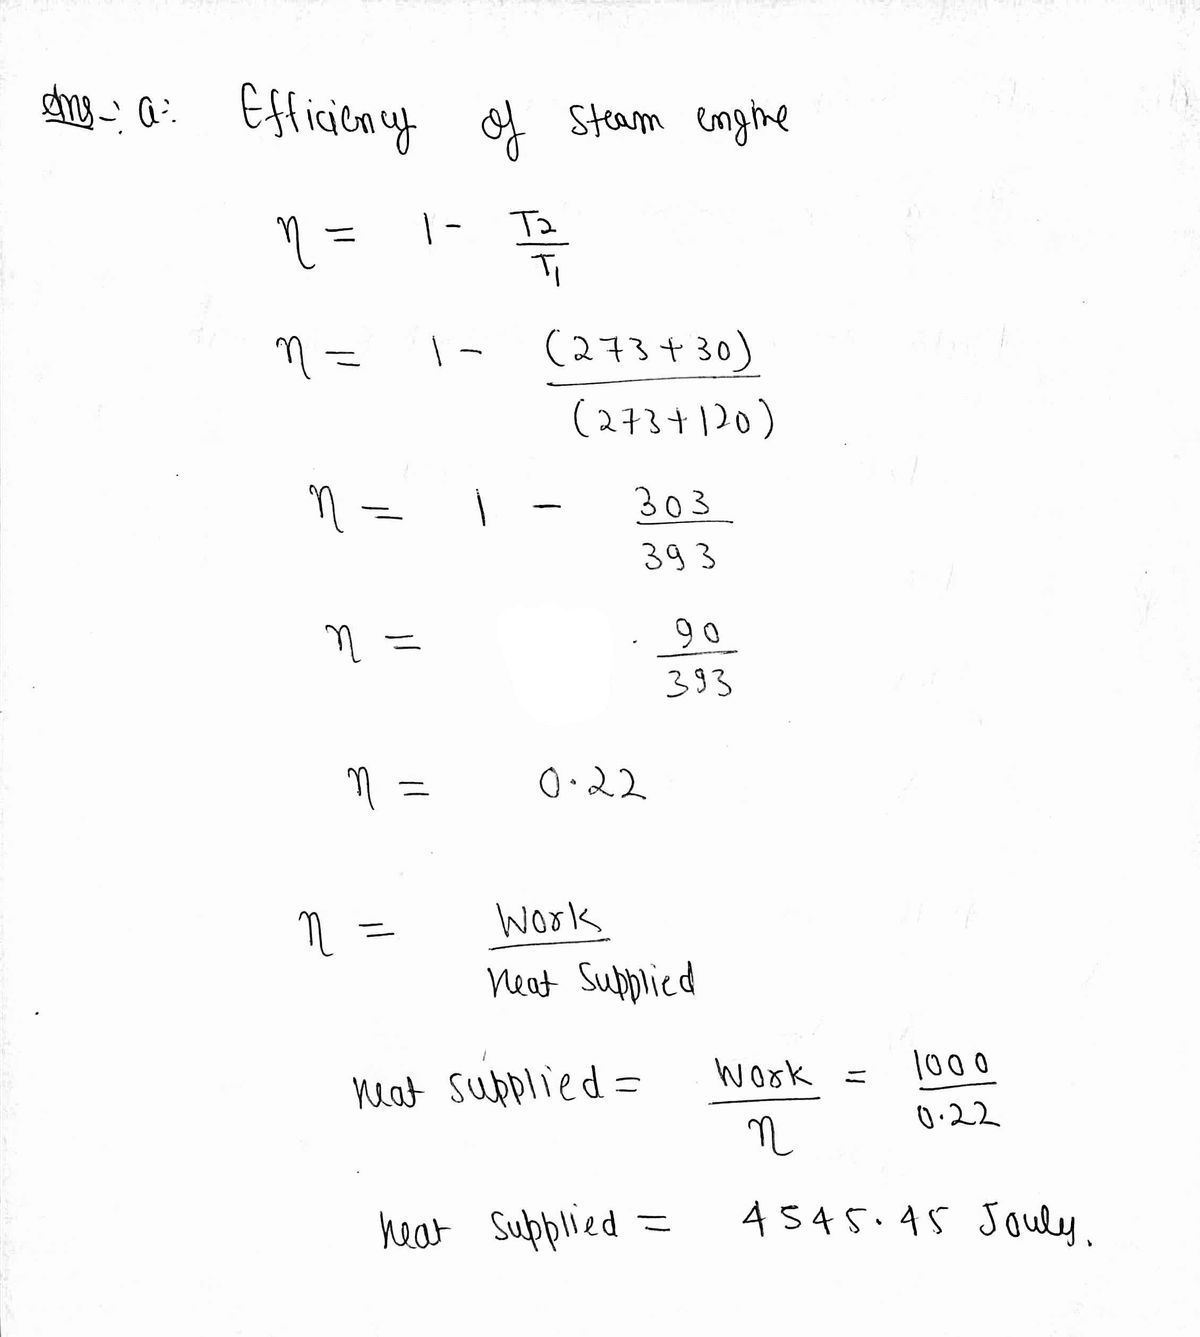 Ans-: a:- Efficiency of steam engine
η = 1 - T2/T1
η = 1 - (273+30)/(273+120)
η = 1 - 303/393
η = 90/393
η = 0.22
η = Work/heat supplied
heat supplied = Work/η = 1000/0.22
heat supplied = 4545.45 Jouly.